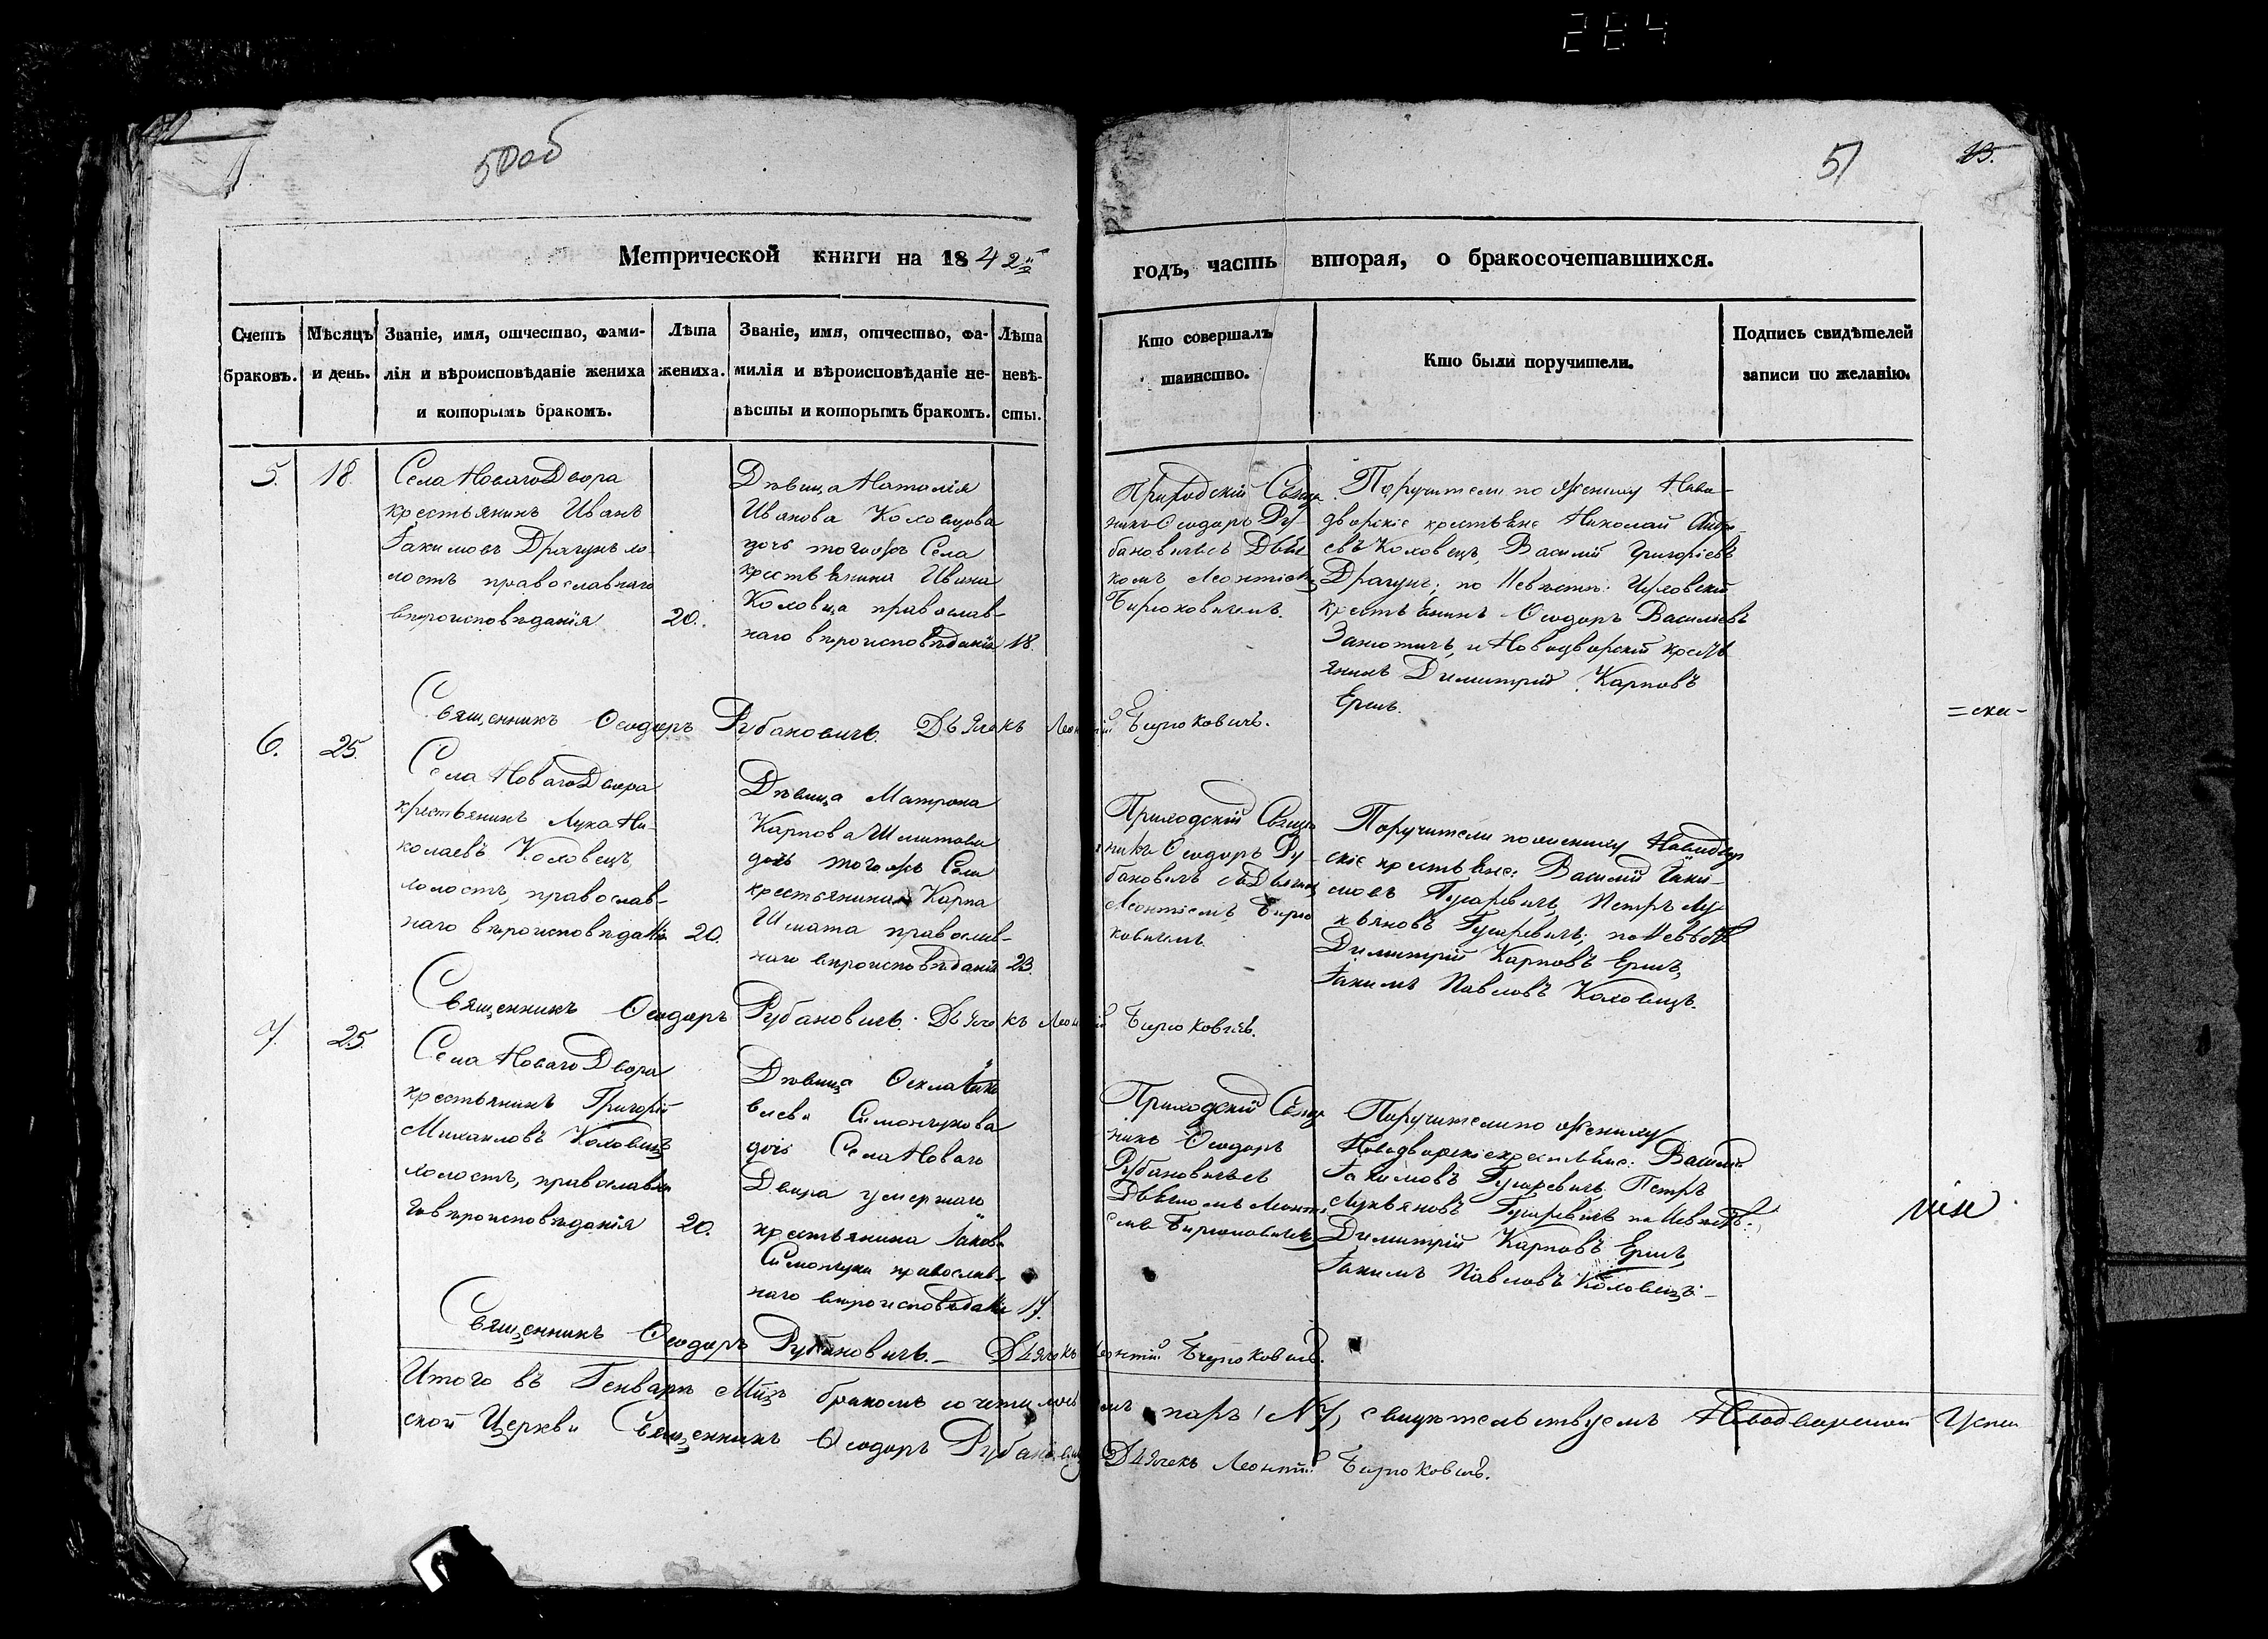 284
50об
51
13.
Метрической книги на 1842й
годъ, часть вторая, о бракосочетавшихся.
Счетъ
браковъ.
Мѣсяцъ
и день.
Званіе, имя, отчество, фами-
лія и вѣроисповѣданіе жениха
и которымъ бракомъ.
Лѣта
жениха.
Званіе, имя, отчество, фа-
милія и вѣроисповѣданіе не-
вѣсты и которымъ бракомъ.
Лѣта
невѣ-
сты.
Кто совершалъ
таинство.
Кто были поручители.
Подпись свидѣтелей
записи по желанію.
5.
18.
Села Новаго Двора
крестьянинъ Иванъ
Іакимовъ Драгунъ хо-
лостъ православнаго
вѣроисповѣданія
20.
Дѣвица Наталія
Иванова Коховцова
дочь тогожъ Села
крестьянина Ивана
Коховца православ-
наго вѣроисповѣданія
18.
Приходскій Свяще
никъ Ѳеодоръ Ру-
бановичь съ Дьяч
комъ Леонтіемъ
Бирюковичемъ.
Поручители по жениху Ново-
дворскіе крестьяне Николай
евъ Коховецъ, Василій Григоріевъ
Драгунъ; по Невѣстѣ:
крестьянинъ Ѳеодоръ Василіевъ
и Новодворскій кресть
янинъ Димитрій Карповъ
Ершъ.
Священникъ Ѳеодоръ Рубановичь. Дьячекъ Леонтій Бирюковичь.
=ска-
6.
25.
Села Новаго Двора
крестьянинъ Лука Ни-
колаевъ Коховецъ,
холостъ, православ-
наго вѣроисповѣданія
20.
Дѣвица Матрона
Карпова Шматова
дочь тогожъ Села
крестьянина Карпа
Шмата православ-
наго вѣроисповѣданія
23.
Приходскій Свяще
никъ Ѳеодоръ Ру-
бановичь съ Дьячком
Леонтіемъ Бирю
ковичемъ.
Поручители по жениху Новодвор
скіе крестьяне: Василій Іаки-
мовъ Гусаревичь, Петръ Лу-
кьяновъ Гусаревичь; по Невѣстѣ
Димитрій Карповъ Ершъ,
Іакимъ Павловъ Коховецъ.
Священникъ Ѳеодоръ Рубановичь. Дьячекъ Леонтій Бирюковичь.
7.
25.
Села Новаго Двора
крестьянинъ Григорій
Михаиловъ Коховецъ
холостъ, православна
го вѣроисповѣданія
20.
Дѣвица Ѳекла Іако
влева Симончукова
дочь Села Новаго
Двора умершаго
крестьянина Іакова
Симончука православ-
наго вѣроисповѣданія
17.
Приходскій Свяще
никъ Ѳеодоръ
Рубановичь съ
Дьячкомъ Леонті
емъ Бирюковичемъ
Поручители по жениху
Новодворскіе крестьяне: Василій
Іакимовъ Гусаревичь, Петръ
Лукьяновъ Гусаревичь по Невѣстѣ:
Димитрій Карповъ Ершъ,
Іакимъ Павловъ Коховецъ.
Священникъ Ѳеодоръ Рубановичь. Дьячекъ Леонтій Бирюковичь.
Итого въ Генварѣ Мцѣ бракомъ сочеталось паръ (N 7) свидѣтельствуемъ Новодворской Успен
ской Церкви Священникъ Ѳеодоръ Рубановичь Дьячекъ Леонтій Бирюковичь.